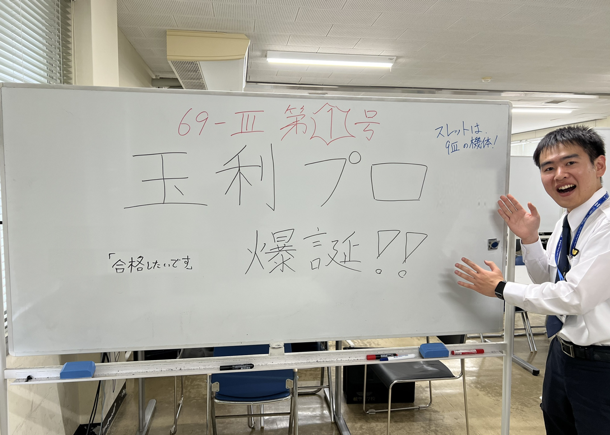 69-Ⅲ 第1号
スレットは
9Ⅲの機体!
玉利プロ
爆誕!!
「合格したいです」